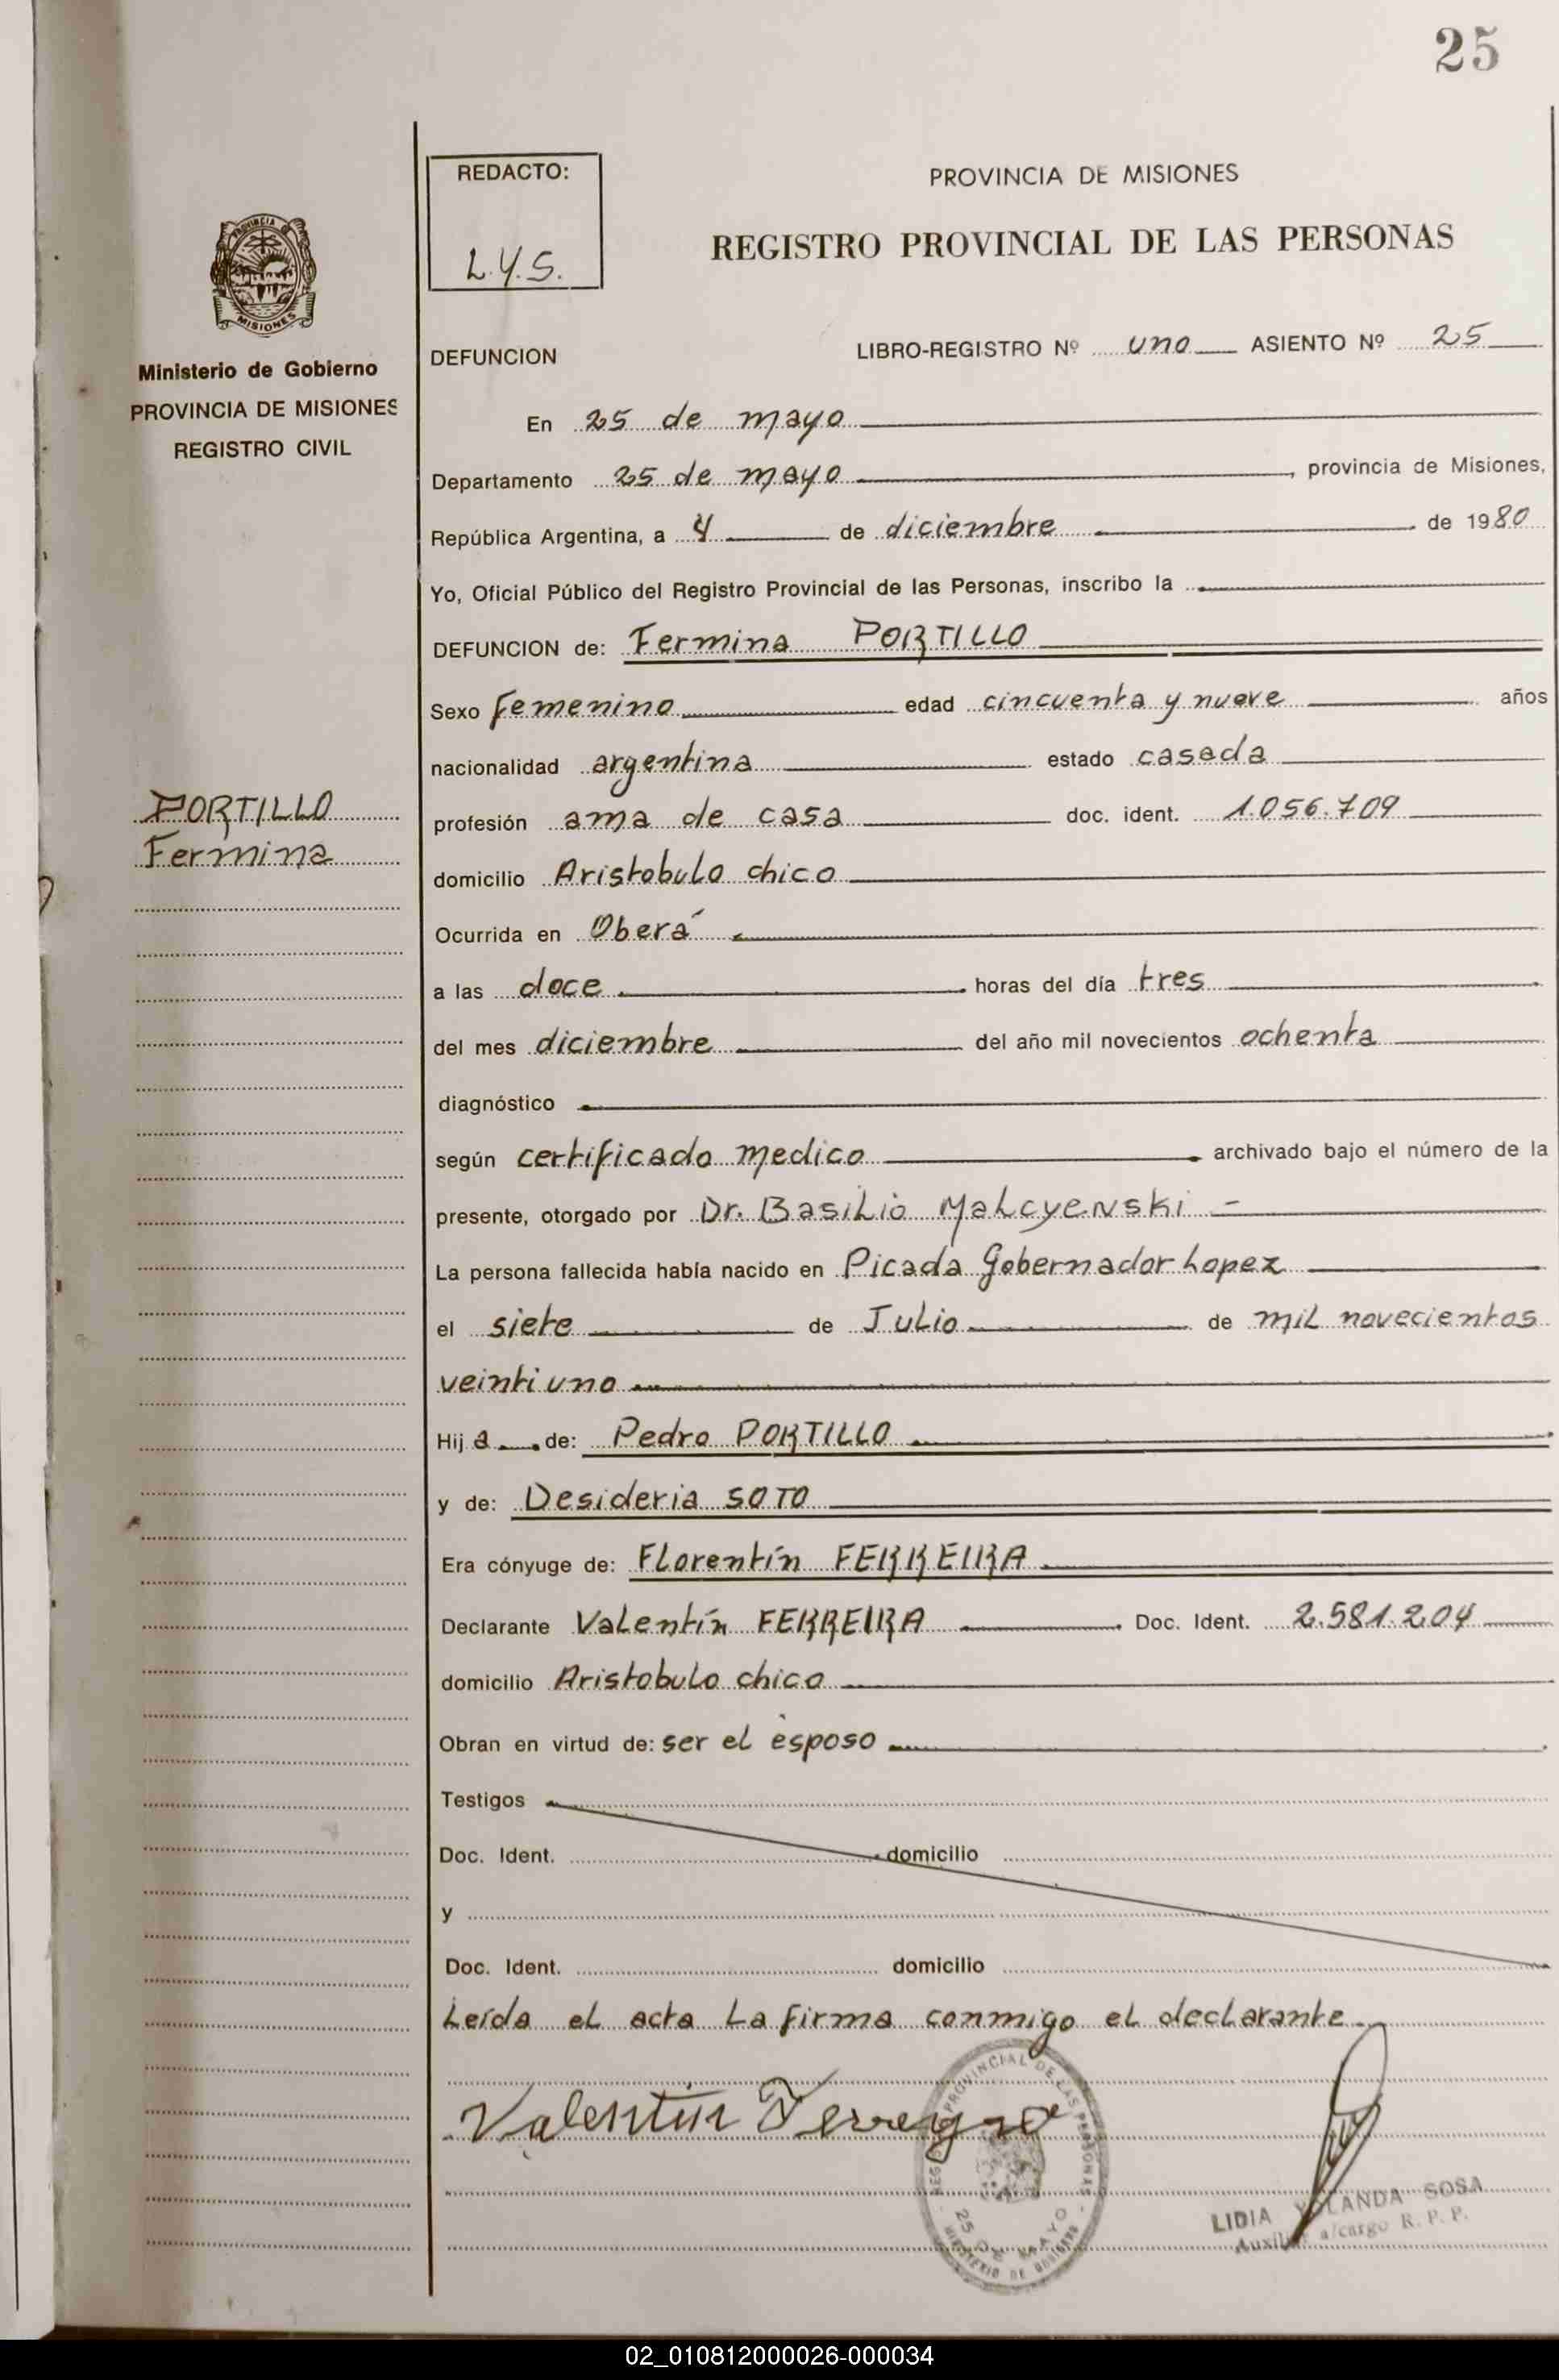 25
REDACTO:
L.Y.S.
PROVINCIA DE MISIONES
REGISTRO PROVINCIAL DE LAS PERSONAS
PROVINCIA DE
MISIONES
Ministerio de Gobierno
PROVINCIA DE MISIONES
REGISTRO CIVIL
DEFUNCION LIBRO-REGISTRO Nº uno ASIENTO Nº 25
En 25 de mayo
Departamento 25 de mayo, provincia de Misiones,
República Argentina, a 4 de diciembre de 1980
Yo, Oficial Público del Registro Provincial de las Personas, inscribo la
DEFUNCION de: Fermina PORTILLO
Sexo femenino edad cincuenta y nueve años
nacionalidad argentina estado casada
PORTILLO
Fermina
profesión ama de casa doc. ident. 1.056.709
domicilio Aristobulo chico
Ocurrida en Oberá
a las doce horas del día tres
del mes diciembre del año mil novecientos ochenta
diagnóstico
según certificado medico archivado bajo el número de la
presente, otorgado por Dr. Basilio Malcyenski -
La persona fallecida había nacido en Picada Gobernador Lopez
el siete de Julio de mil novecientos
veintiuno
Hij a de: Pedro PORTILLO
y de: Desideria SOTO
Era cónyuge de: Florentín FERREIRA
Declarante Valentín FERREIRA Doc. Ident. 2.581.204
domicilio Aristobulo chico
Obran en virtud de: ser el esposo
Testigos
Doc. Ident. domicilio
y
Doc. Ident. domicilio
Leída el acta la firma conmigo el declarante
Valentin Ferreyra
REGISTRO PROVINCIAL DE LAS PERSONAS
25 DE MAYO
MINISTERIO DE GOBIERNO
LIDIA YOLANDA SOSA
Auxiliar a/cargo R. P. P.
02_010812000026-000034